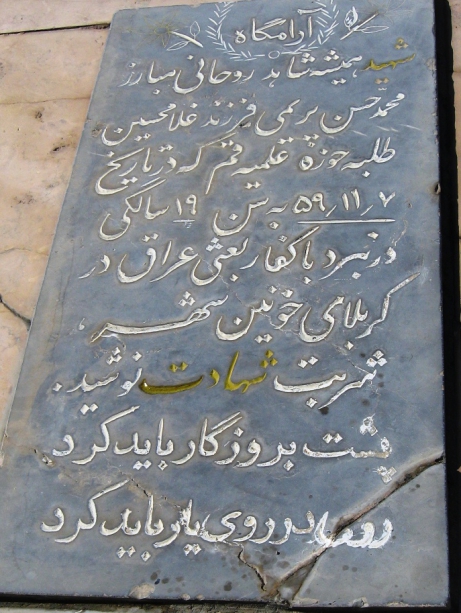 آرامگاه
شهید همیشه شاهد روحانی مبارز
محمدحسن پریمی فرزند غلامحسین
طلبه حوزه علمیه قم که در تاریخ
۵۹/۱۱/۷ به سن ۱۹ سالگی
در نبرد با کفار بعثی عراق در
کربلای خونین شهر
شربت شهادت نوشید.
پشت بروزگار باید کرد
در روی یار باید کرد